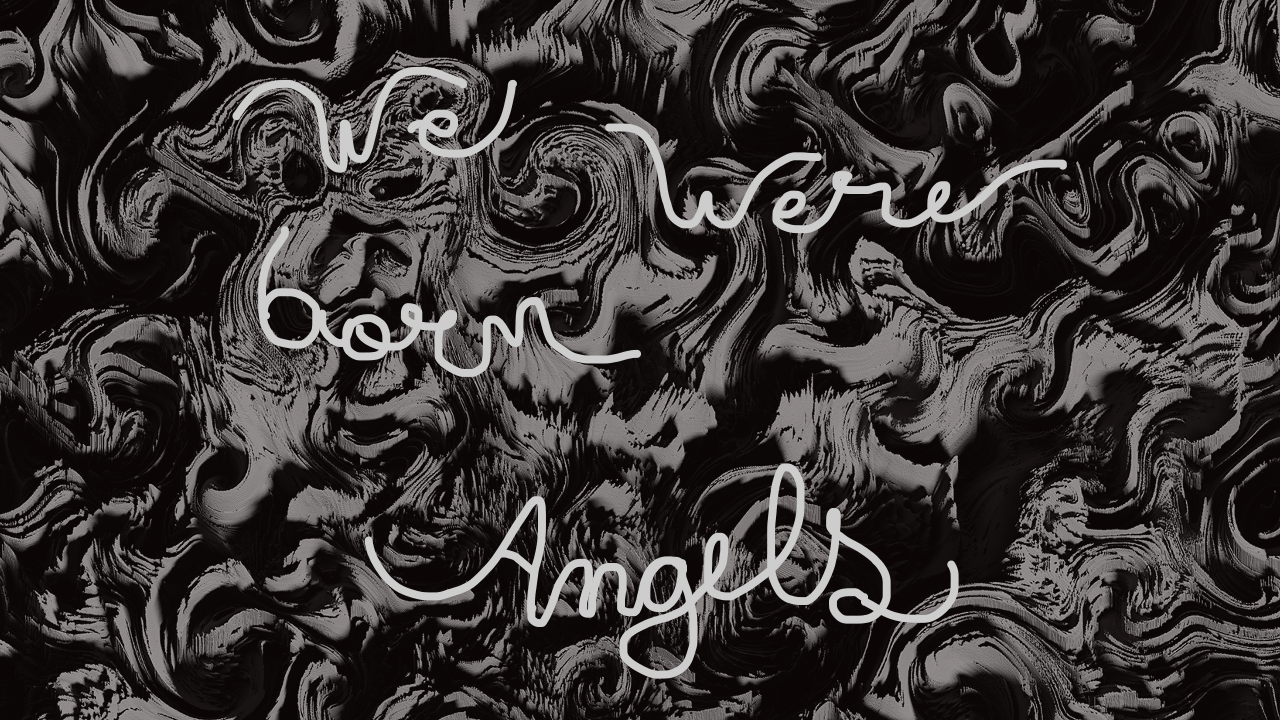 We were
born
Angels